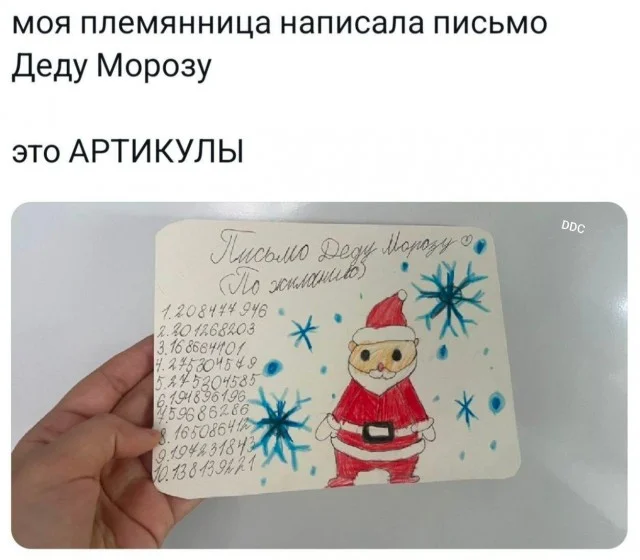 моя племянница написала письмо
Деду Морозу
это АРТИКУЛЫ
DDC
Письмо Деду Морозу
(По жиланию)
1.208477946
2.201268203
3.168664701
4.275304548
5.275204585
6.191896196
7.59686286
8.165086412
9.194231843
10.138139221